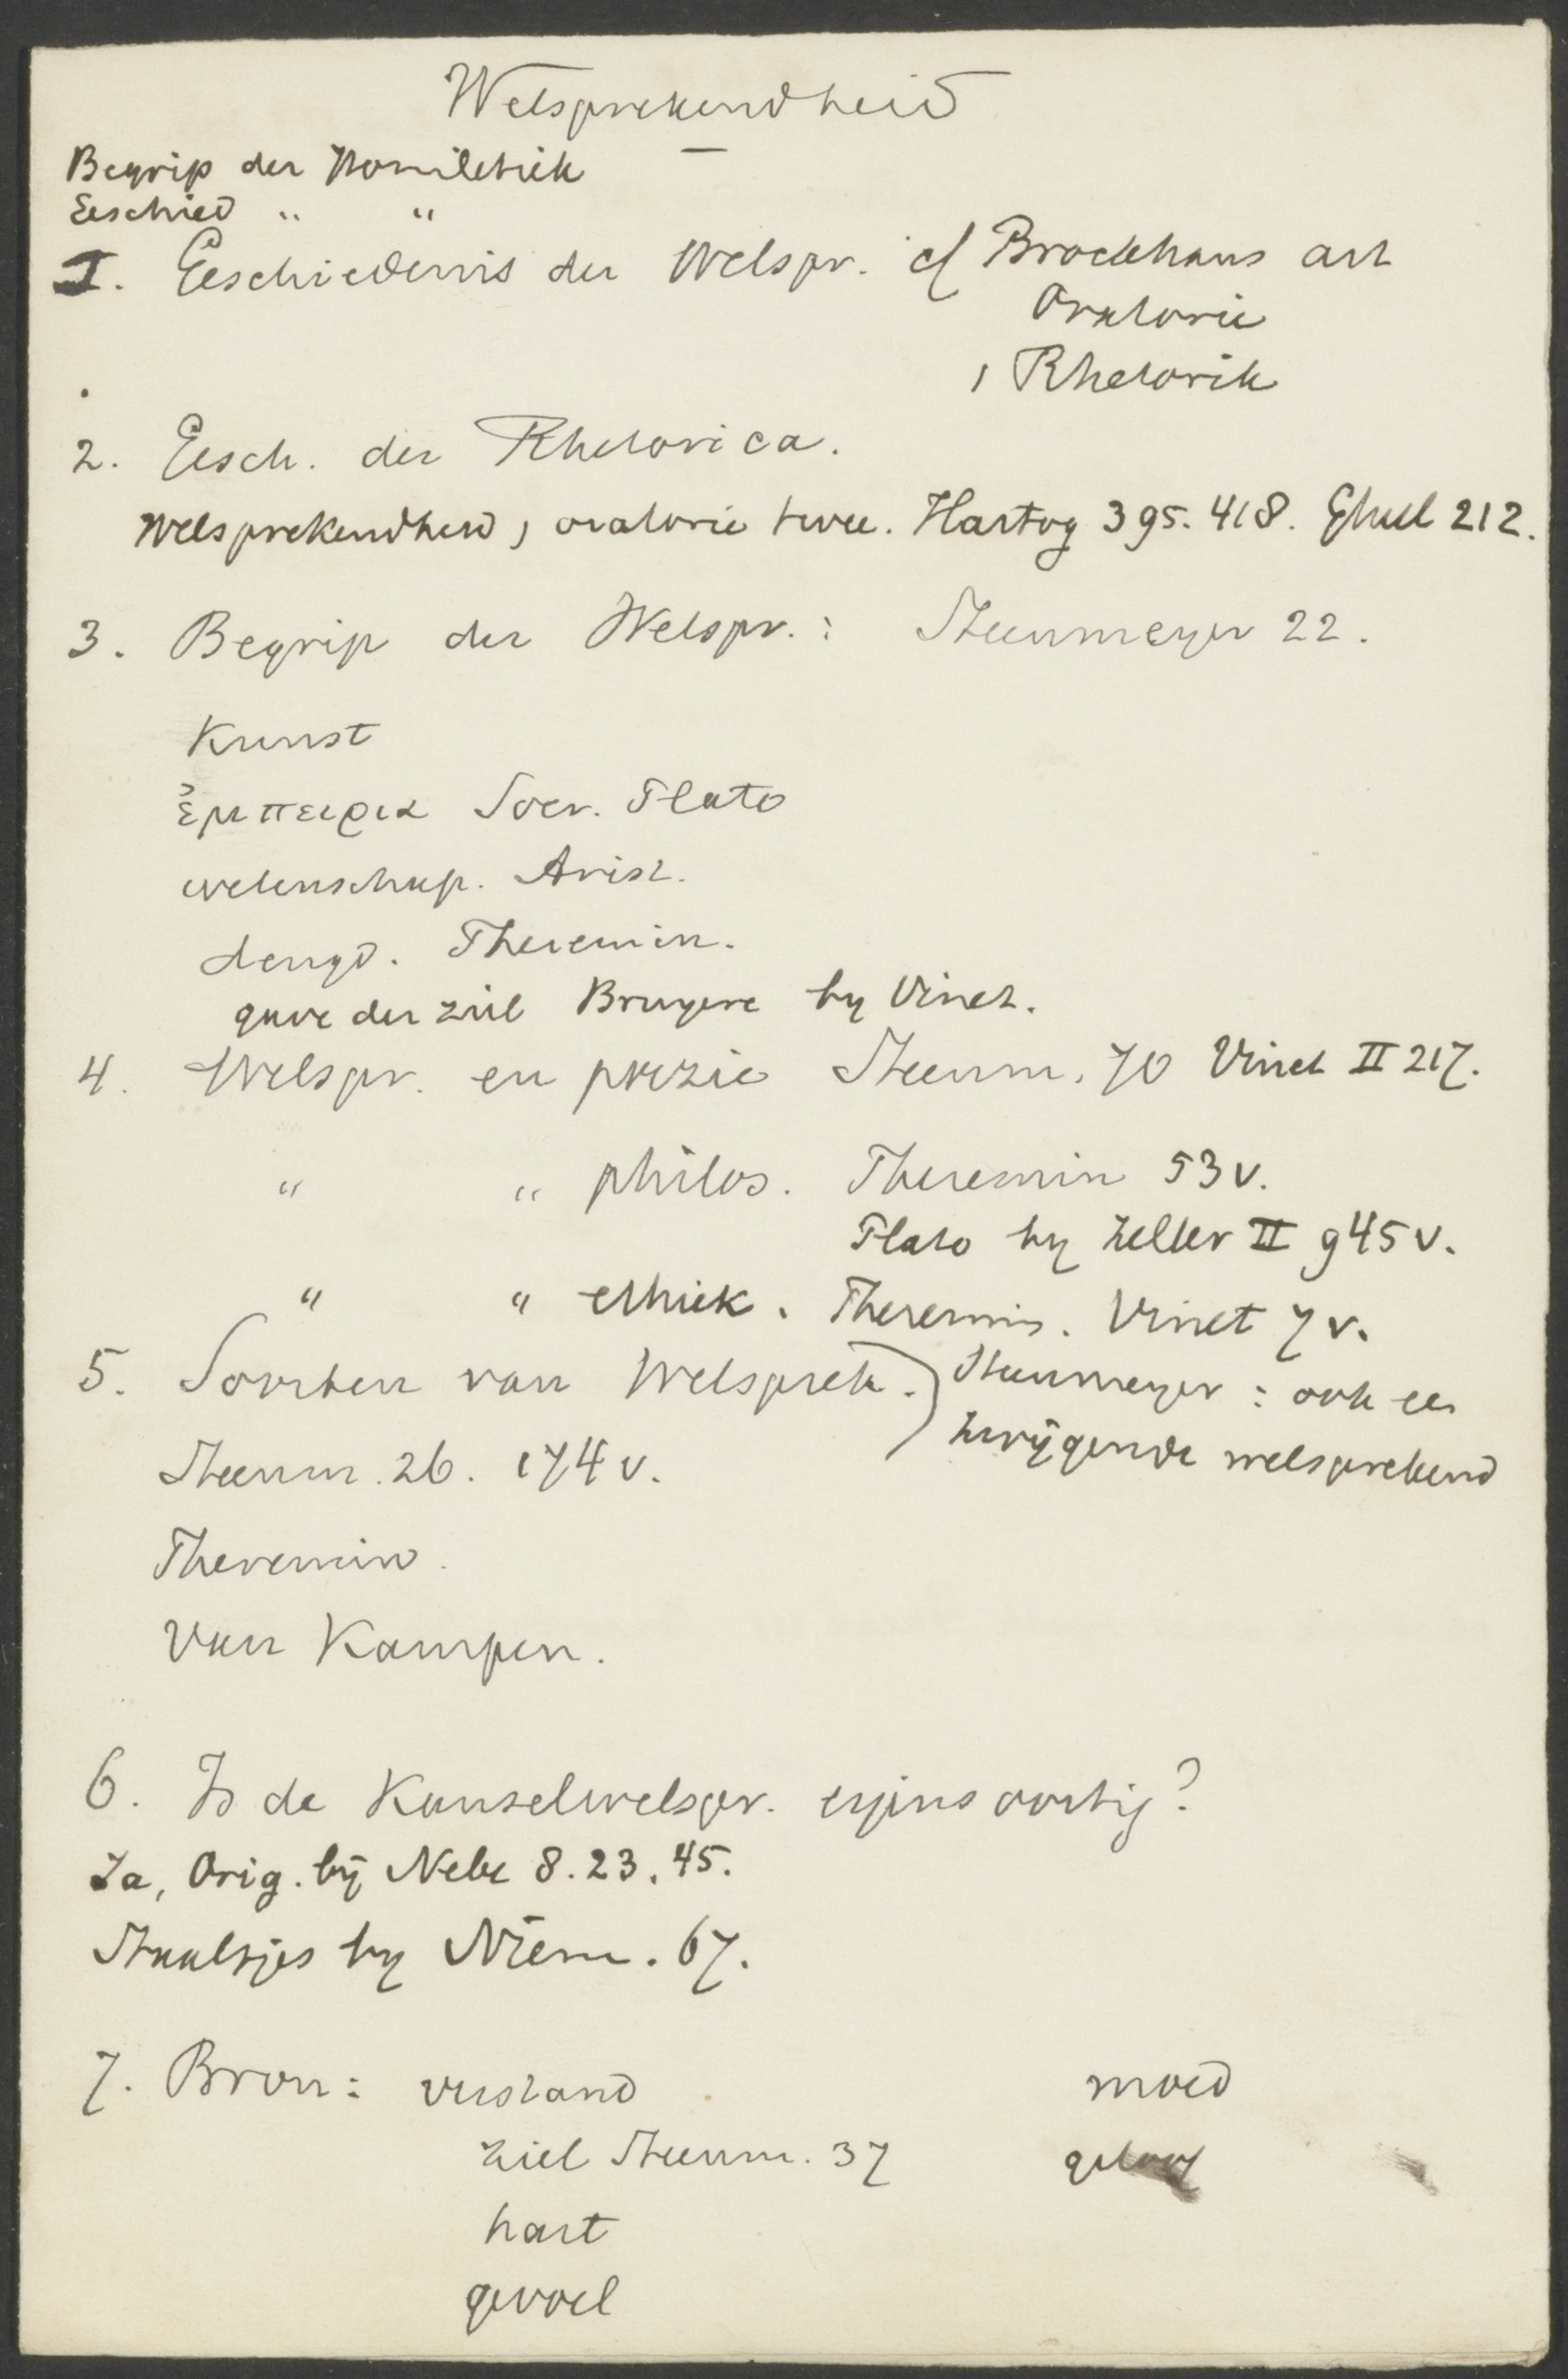 Welsprekendheid
Begrip der Homiletiek
Geschied " "
I. Geschiedenis der Welspr. cf Brockhaus art
Oratorie
, Rhetorik
2. Gesch. der Rhetorica.
Welsprekendheid, oratorie twee. Hartog 395. 418. 212.
3. Begrip der Welspr.: Steenmeyer 22.
Kunst
ἐμπειρια Socr. Plato
wetenschap. Arist.
deugd. Theremin.
gave der ziel Bruyere by Vinet.
4. Welspr. en poezie Steenm. 70 Vinet II 217.
" " philos. Theremin 53 v.
Plato by Zeller II 945 v.
" " ethiek. Theremin. Vinet 7 v.
5. Soorten van Welsprek. Steenmeyer: ook een
zwijgende welsprekend
Steenm. 26. 174 v.
Theremin.
Van Kampen.
6. Is de Kanselwelspr. eigensoortig?
Ja, Orig. bij Nebe 8. 23. 45.
Staaltjes by Niem. 67.
7. Bron: verstand moed
ziel Steenm. 37 geloof
hart
gevoel